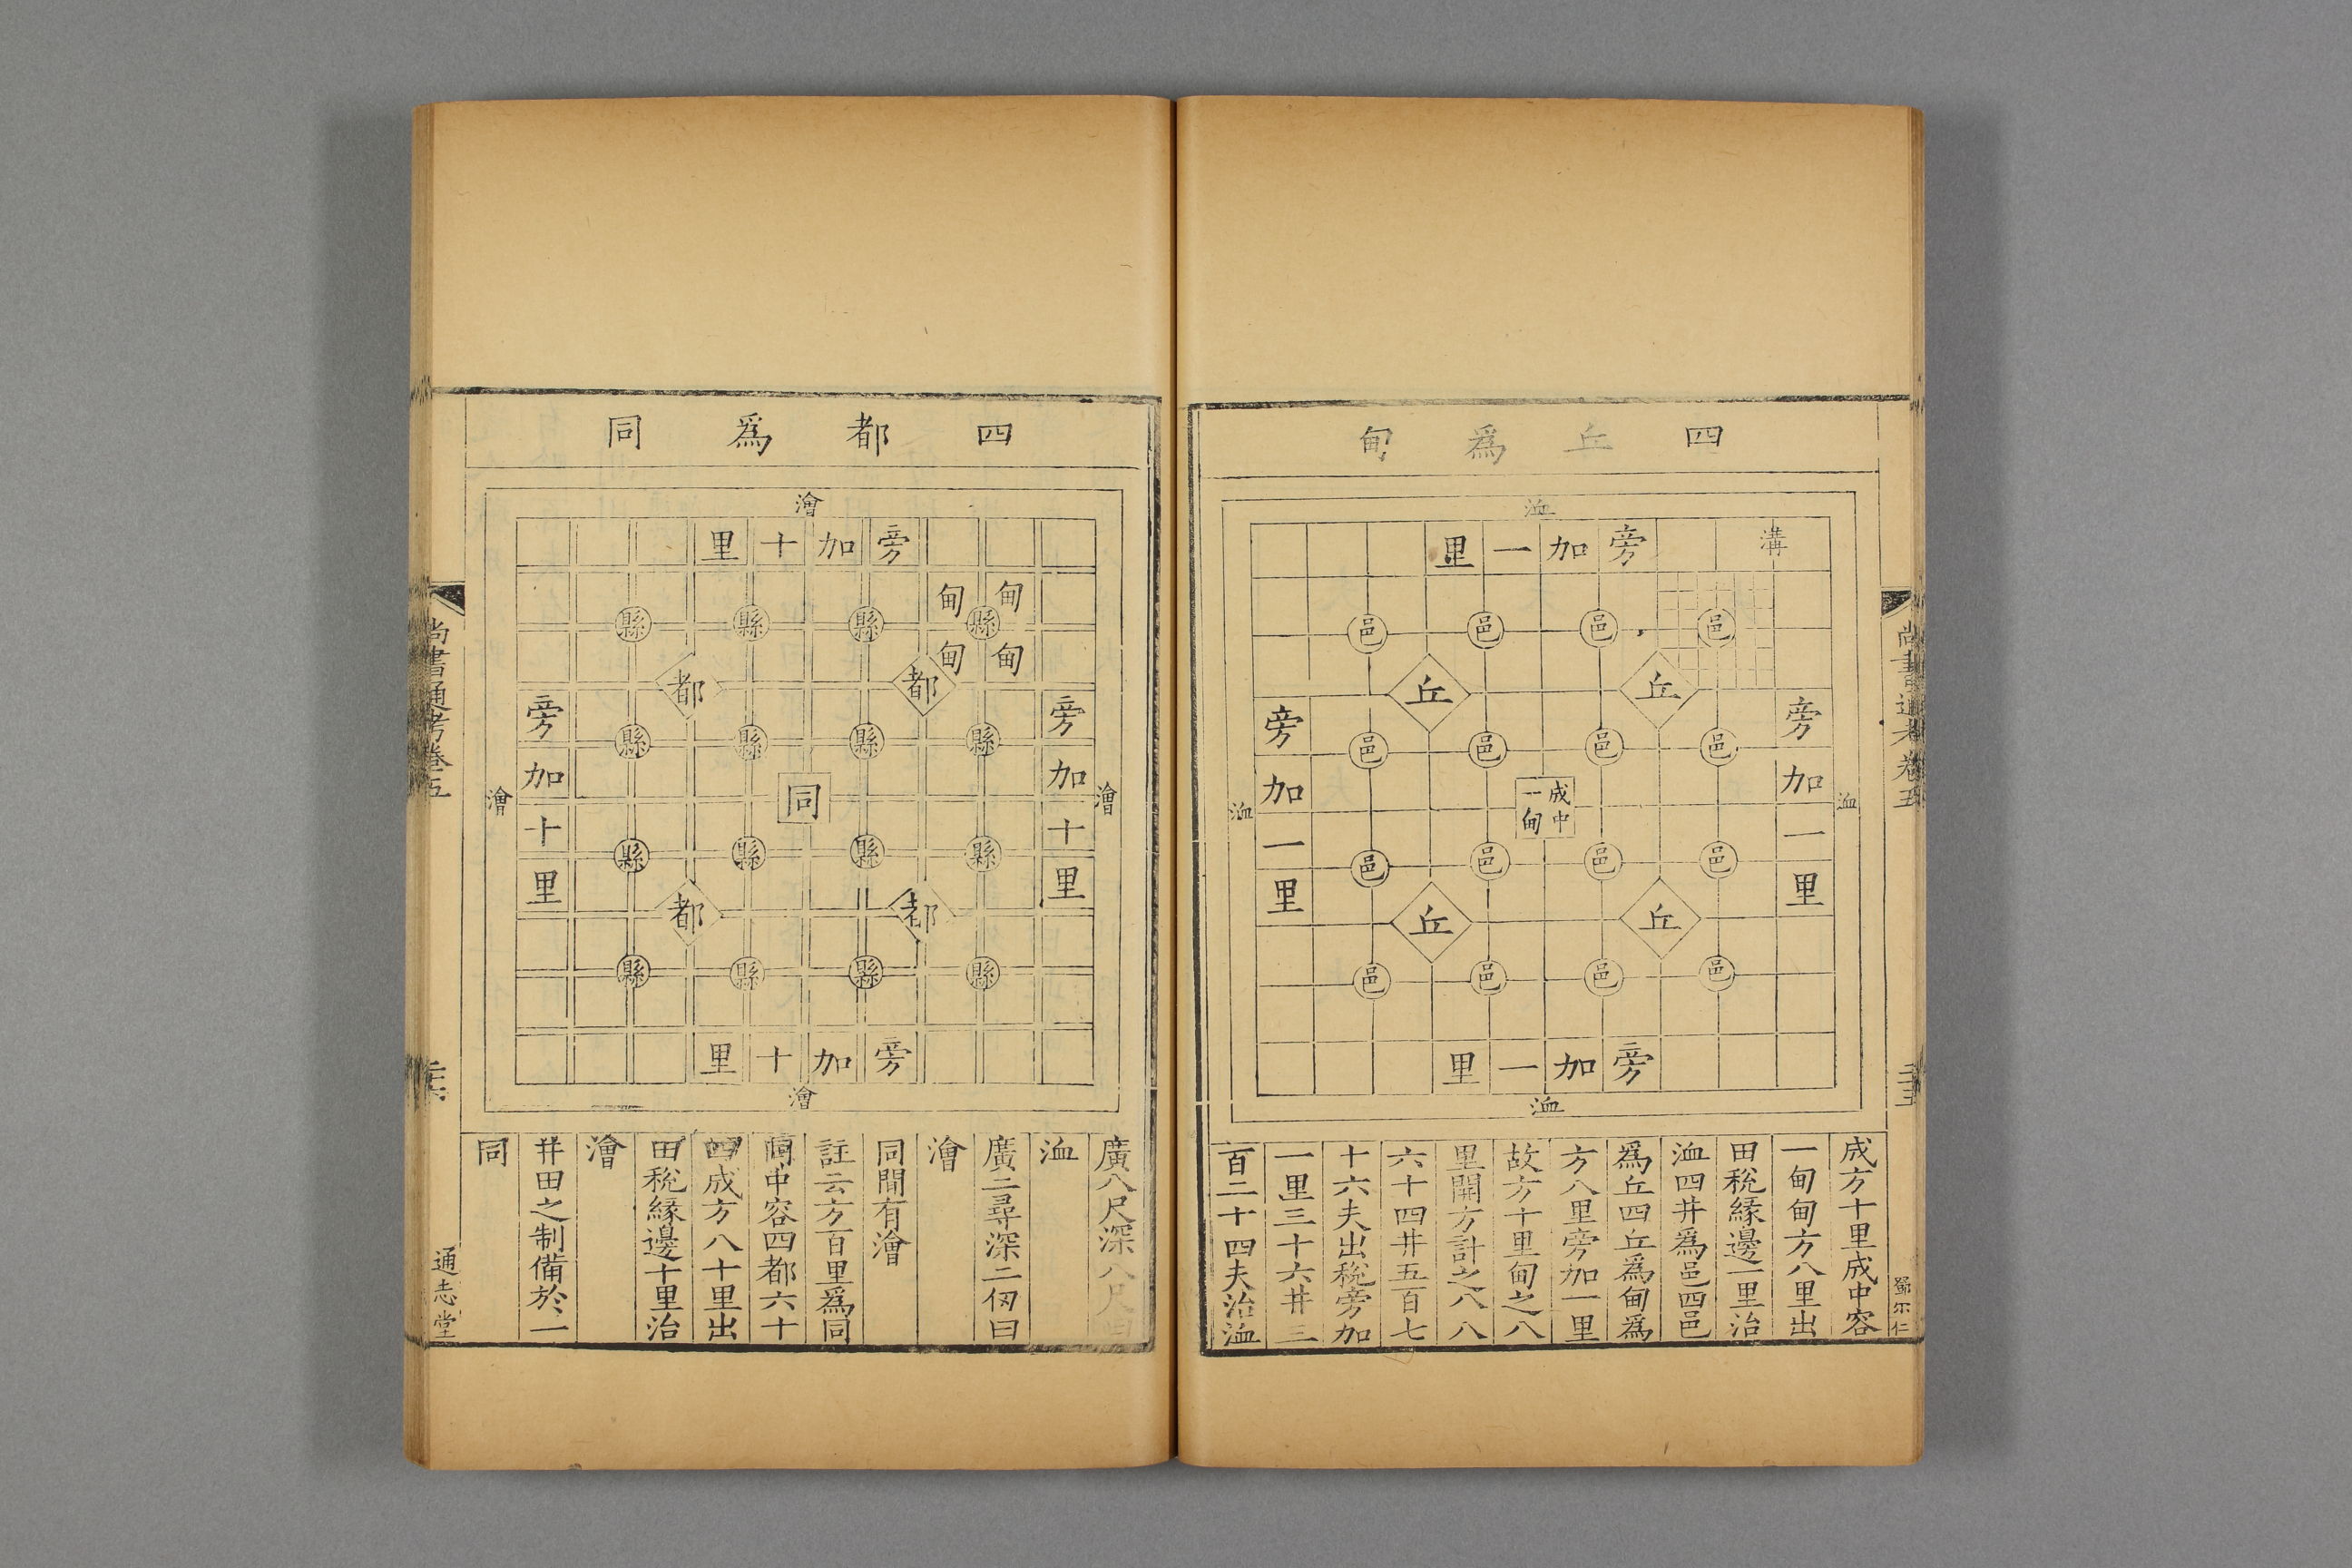 四丘為甸
洫
溝
旁加一里
邑 邑 邑 邑
丘 丘
旁加一里
旁加一里
邑 邑 邑 邑
洫
成中一甸
洫
邑 邑 邑 邑
丘 丘
邑 邑 邑 邑
旁加一里
洫
成方十里成中容
一甸甸方八里出
田稅緣邊一里治
洫四井為邑四邑
為丘四丘為甸為
方八里旁加一里
故方十里甸之八
里開方計之八八
六十四井五百七
十六夫出稅旁加
一里三十六井三
百二十四夫治洫
尚書通考卷五
鄧尔仁
四都為同
澮
旁加十里
甸 甸
縣 縣 縣 縣
甸 甸
都 都
旁加十里
旁加十里
縣 縣 縣 縣
澮
同
澮
縣 縣 縣 縣
都 都
縣 縣 縣 縣
旁加十里
澮
廣八尺深八尺
洫
廣二尋深二仞曰
澮
同間有澮
註云方百里為同
同中容四都六十
四成方八十里出
田稅緣邊十里治
澮
井田之制備於一
同
尚書通考卷五
通志堂